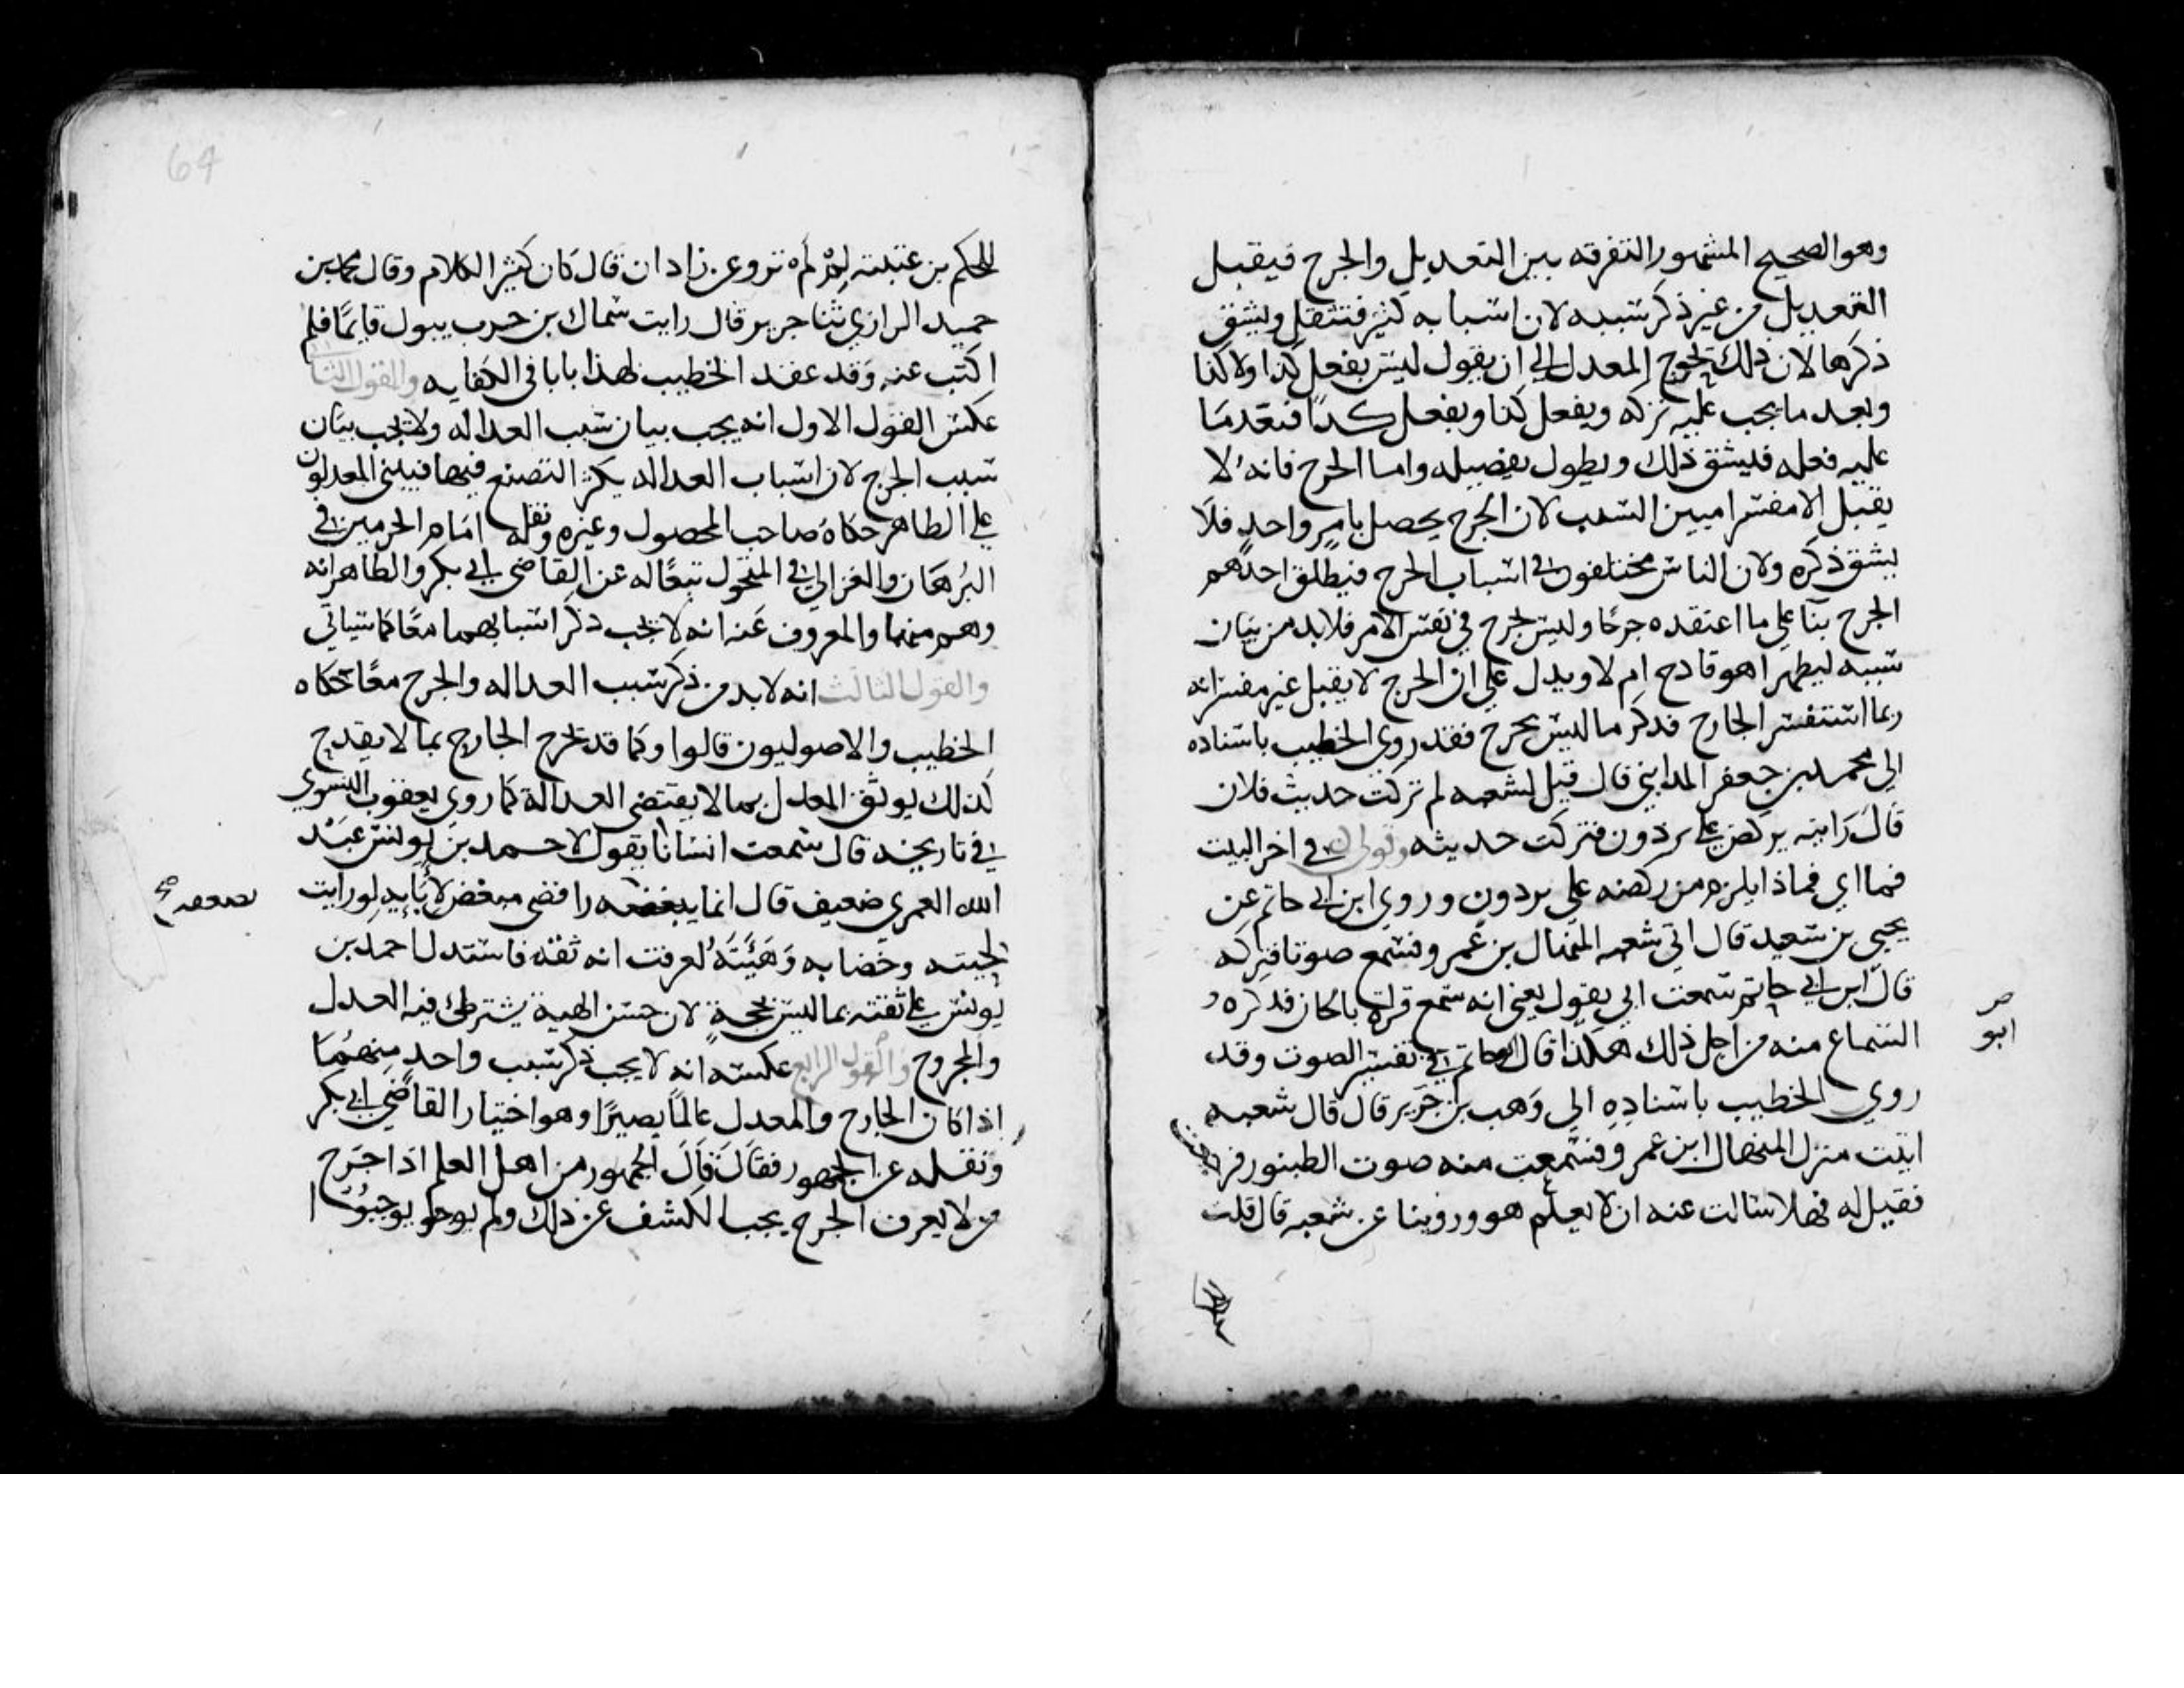 وهو الصحيح المشهور التفرقه بين التعديل والجرح فيقبل
التعديل من غير ذكر سببه لان اسبابه كثيرة فتثقل ويشق
ذكرها لان ذلك يحوج المعدل الي ان يقول ليس يفعل كذا ولا كذا
ويعد ما يجب عليه تركه ويفعل كذا ويفعل كذا فيعد ما
عليه فعله فيشق ذلك ويطول تفصيله واما الجرح فانه لا
يقبل الا مفسرا مبين السبب لان الجرح يحصل بامر واحد فلا
يشق ذكره ولان الناس مختلفون في اسباب الجرح فيطلق احدهم
الجرح بنآ علي ما اعتقده جرحا وليس بجرح في نفس الامر فلابد من بيان
سببه ليظهر اهو قادح ام لا ويدل علي ان الجرح لا يقبل غير مفسر انه
ربما استفسر الجارح فذكر ما ليس بجرح فقد روي الخطيب باسناده
الي محمد بن جعفر المدايني قال قيل لشعبه لم تركت حديث فلان
قال رايته يركض علي برذون فتركت حديثه وقولي في اخر البيت
فما اي فماذا يلزم من ركضه علي برذون وروي ابن ابي حاتم عن
يحيي بن سعيد قال اتي شعبه المنهال بن عمرو فسمع صوتا فتركه
قال ابن ابي حاتم سمعت ابي يقول يعني انه سمع قراة بالحان فكره
السماع منه من اجل ذلك هكذا قال ابو حاتم في تفسير الصوت وقد
ابو
روي الخطيب باسناده الي وهب بن جرير قال قال شعبه
اتيت منزل المنهال ابن عمرو فسمعت منه صوت الطنبور فرجعت
فقيل له فهلا سالت عنه ان لا يعلم هو وروينا عن شعبه قال قلت
64
للحكم بن عتيبه لم لم ترو عن زادان قال كان كثير الكلام وقال محمد بن
حميد الرازي ثنا جرير قال رايت سماك بن حرب يبول قايما فلم
اكتب عنه وقد عقد الخطيب لهذا بابا في الكفايه والقول الثاني
عكس القول الاول انه يجب بيان سبب العداله ولا يجب بيان
سبب الجرح لان اسباب العداله يكثر التصنع فيها فيبني المعدلون
علي الظاهر حكاه صاحب المحصول وغيره ونقله امام الحرمين في
البرهان والغزالي في المنخول تبعا له عن القاضي ابي بكر والظاهر انه
وهم منهما والمعروف عنه انه لا يجب ذكر اسبابهما معا كما سياتي
والقول الثالث انه لابد من ذكر سبب العداله والجرح معا حكاه
الخطيب والاصوليون قالوا وكما قد يجرح الجارح بما لا يقدح
كذلك يوثق المعدل بما لا يقتضي العدالة كما روي يعقوب الفسوي
في تاريخه قال سمعت انسانا يقول لاحمد بن يونس عبد
الله العمري ضعيف قال انما يضعفه رافضي مبغض لابايه لو رايت
يضعفه صح
لحيته وخضابه وهيئته لعرفت انه ثقه فاستدل احمد بن
يونس علي ثقته بما ليس بحجة لان حسن الهية يشترك فيه العدل
والمجروح والقول الرابع عكسه انه لا يجب ذكر سبب واحد منهما
اذا كان الجارح والمعدل عالما بصيرا وهو اختيار القاضي ابي بكر
ونقله عن الجمهور فقال قال الجمهور من اهل العلم اذا جرح
من لا يعرف الجرح يجب الكشف عن ذلك ولم يوجبوا